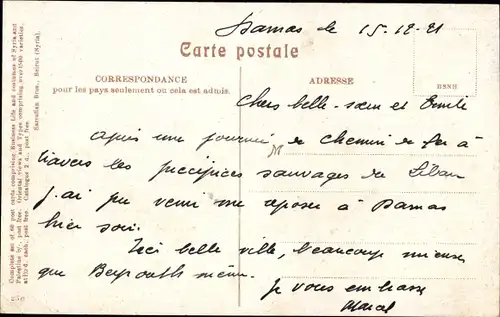 Damas le 15-12-21
Carte postale
CORRESPONDANCE
pour les pays seulement ou cela est admis.
ADRESSE
BSNH
Chers belle-sœur et Emile
Après une journée de chemin de fer à
travers les précipices sauvages du Liban
j'ai pu venir me reposer à Damas
hier soir.
Ici belle ville, beaucoup mieux
que Beyrouth même.
Je vous embrasse
Marcel
Complete set of 60 post cards comprising Business Life and costumes of Syria and
Palestine by, post free. Oriental Views and Types comprising over 1500 varieties,
at d. each, post free. Catalogue 2 d., post free.
Sarrafian Bros., Beirut (Syria).